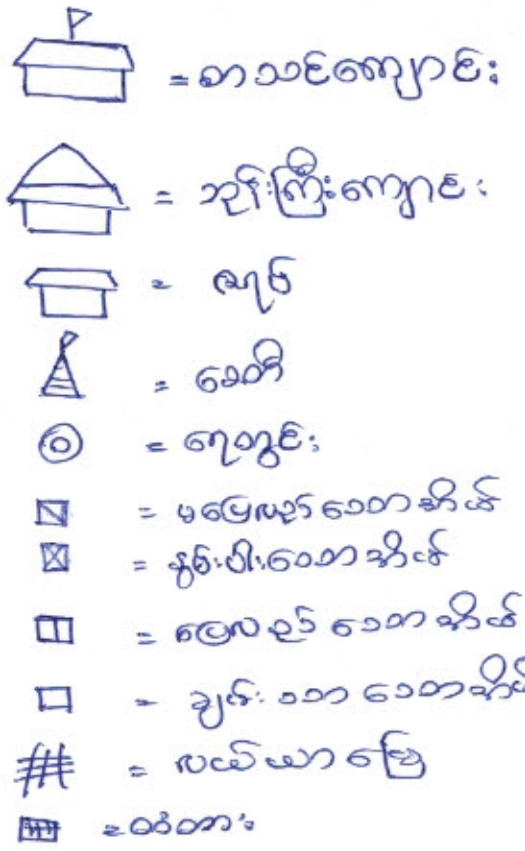 = စာသင်ကျောင်း
= ဘုန်းကြီးကျောင်း
= ဇရပ်
= စေတီ
= ရေတွင်း
= မပြေလည်သောအိမ်
= နွမ်းပါးသောအိမ်
= ပြေလည်သောအိမ်
= ချမ်းသာသောအိမ်
= လယ်ယာမြေ
= တံတား